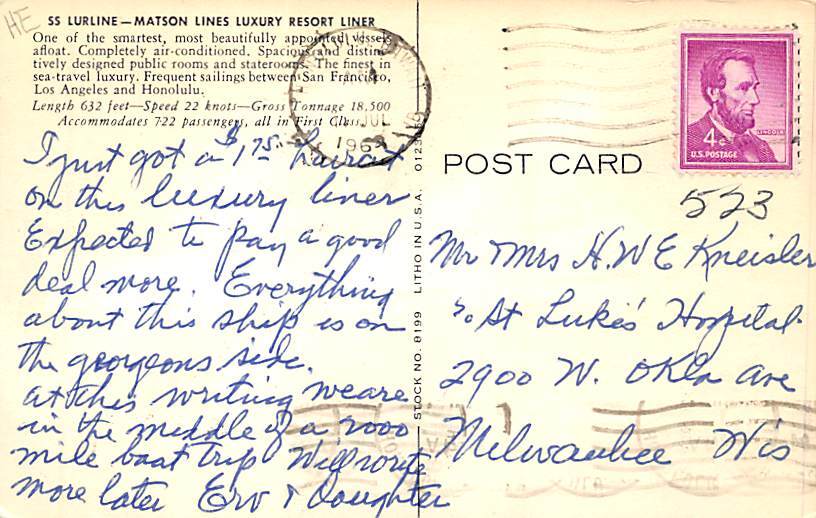 HE
SS LURLINE — MATSON LINES LUXURY RESORT LINER
One of the smartest, most beautifully appointed vessels
afloat. Completely air-conditioned. Spacious and distinc-
tively designed public rooms and staterooms. The finest in
sea-travel luxury. Frequent sailings between San Francisco,
Los Angeles and Honolulu.
Length 632 feet—Speed 22 knots—Gross Tonnage 18,500
Accommodates 722 passengers, all in First Class.
I just got a $1.75 haircut
on this luxury liner
Expected to pay a good
deal more. Everything
about this ship is on
the georgeous side.
at this writing we are
in the middle of a 2000
mile boat trip Will write
more later Erv & Daughter
STOCK NO. 8199 LITHO IN U.S.A.
JUL
196
POST CARD
LINCOLN
4¢
U.S. POSTAGE
523
Mr & Mrs H. W E Kneisler
c/o St Luke's Hospital
2900 W. Okla ave
Milwaukee Wis